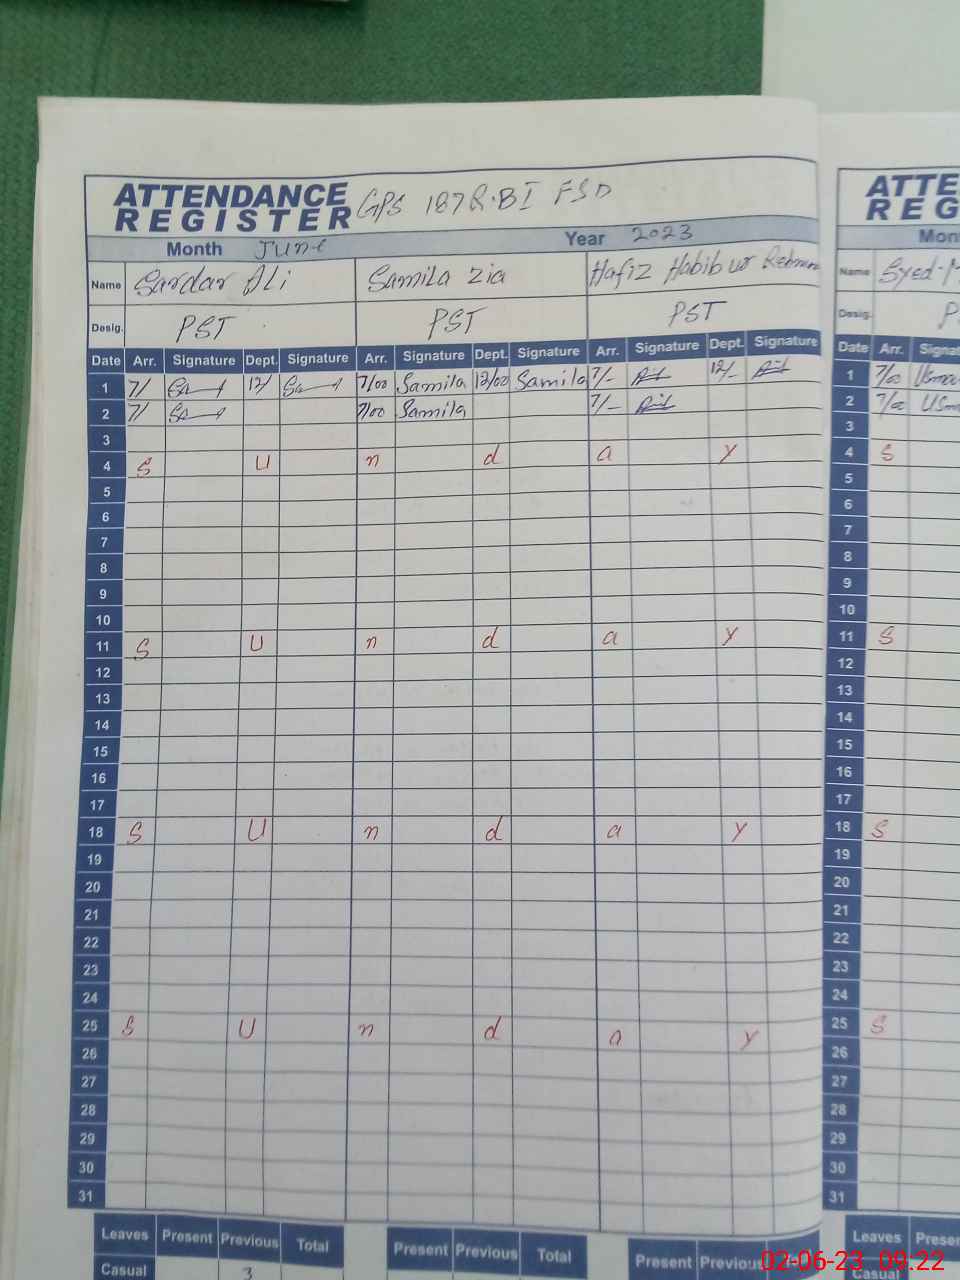 ATTENDANCE REGISTER GPS 187 R.BI FSD
Month June Year 2023
Name Sardar Ali Samila Zia Hafiz Habib ur Rehman
Desig. PST PST PST
Date Arr. Signature Dept. Signature Arr. Signature Dept. Signature Arr. Signature Dept. Signature
1 7/ 12/ 7/00 Samila 12/00 Samila 7/- 12/-
2 7/ 7/00 Samila 7/-
3
4 S U n d a y
5
6
7
8
9
10
11 S U n d a y
12
13
14
15
16
17
18 S U n d a y
19
20
21
22
23
24
25 S U n d a y
26
27
28
29
30
31
Leaves Present Previous Total Present Previous Total Present Previous
Casual 3
ATTE
REG
Mon
Name Syed
Desig. P
Date Arr. Signat
1 7/00 Usma
2 7/00 Usma
3
4 S
5
6
7
8
9
10
11 S
12
13
14
15
16
17
18 S
19
20
21
22
23
24
25 S
26
27
28
29
30
31
Leaves Presen
Casual
02-06-23 09:22